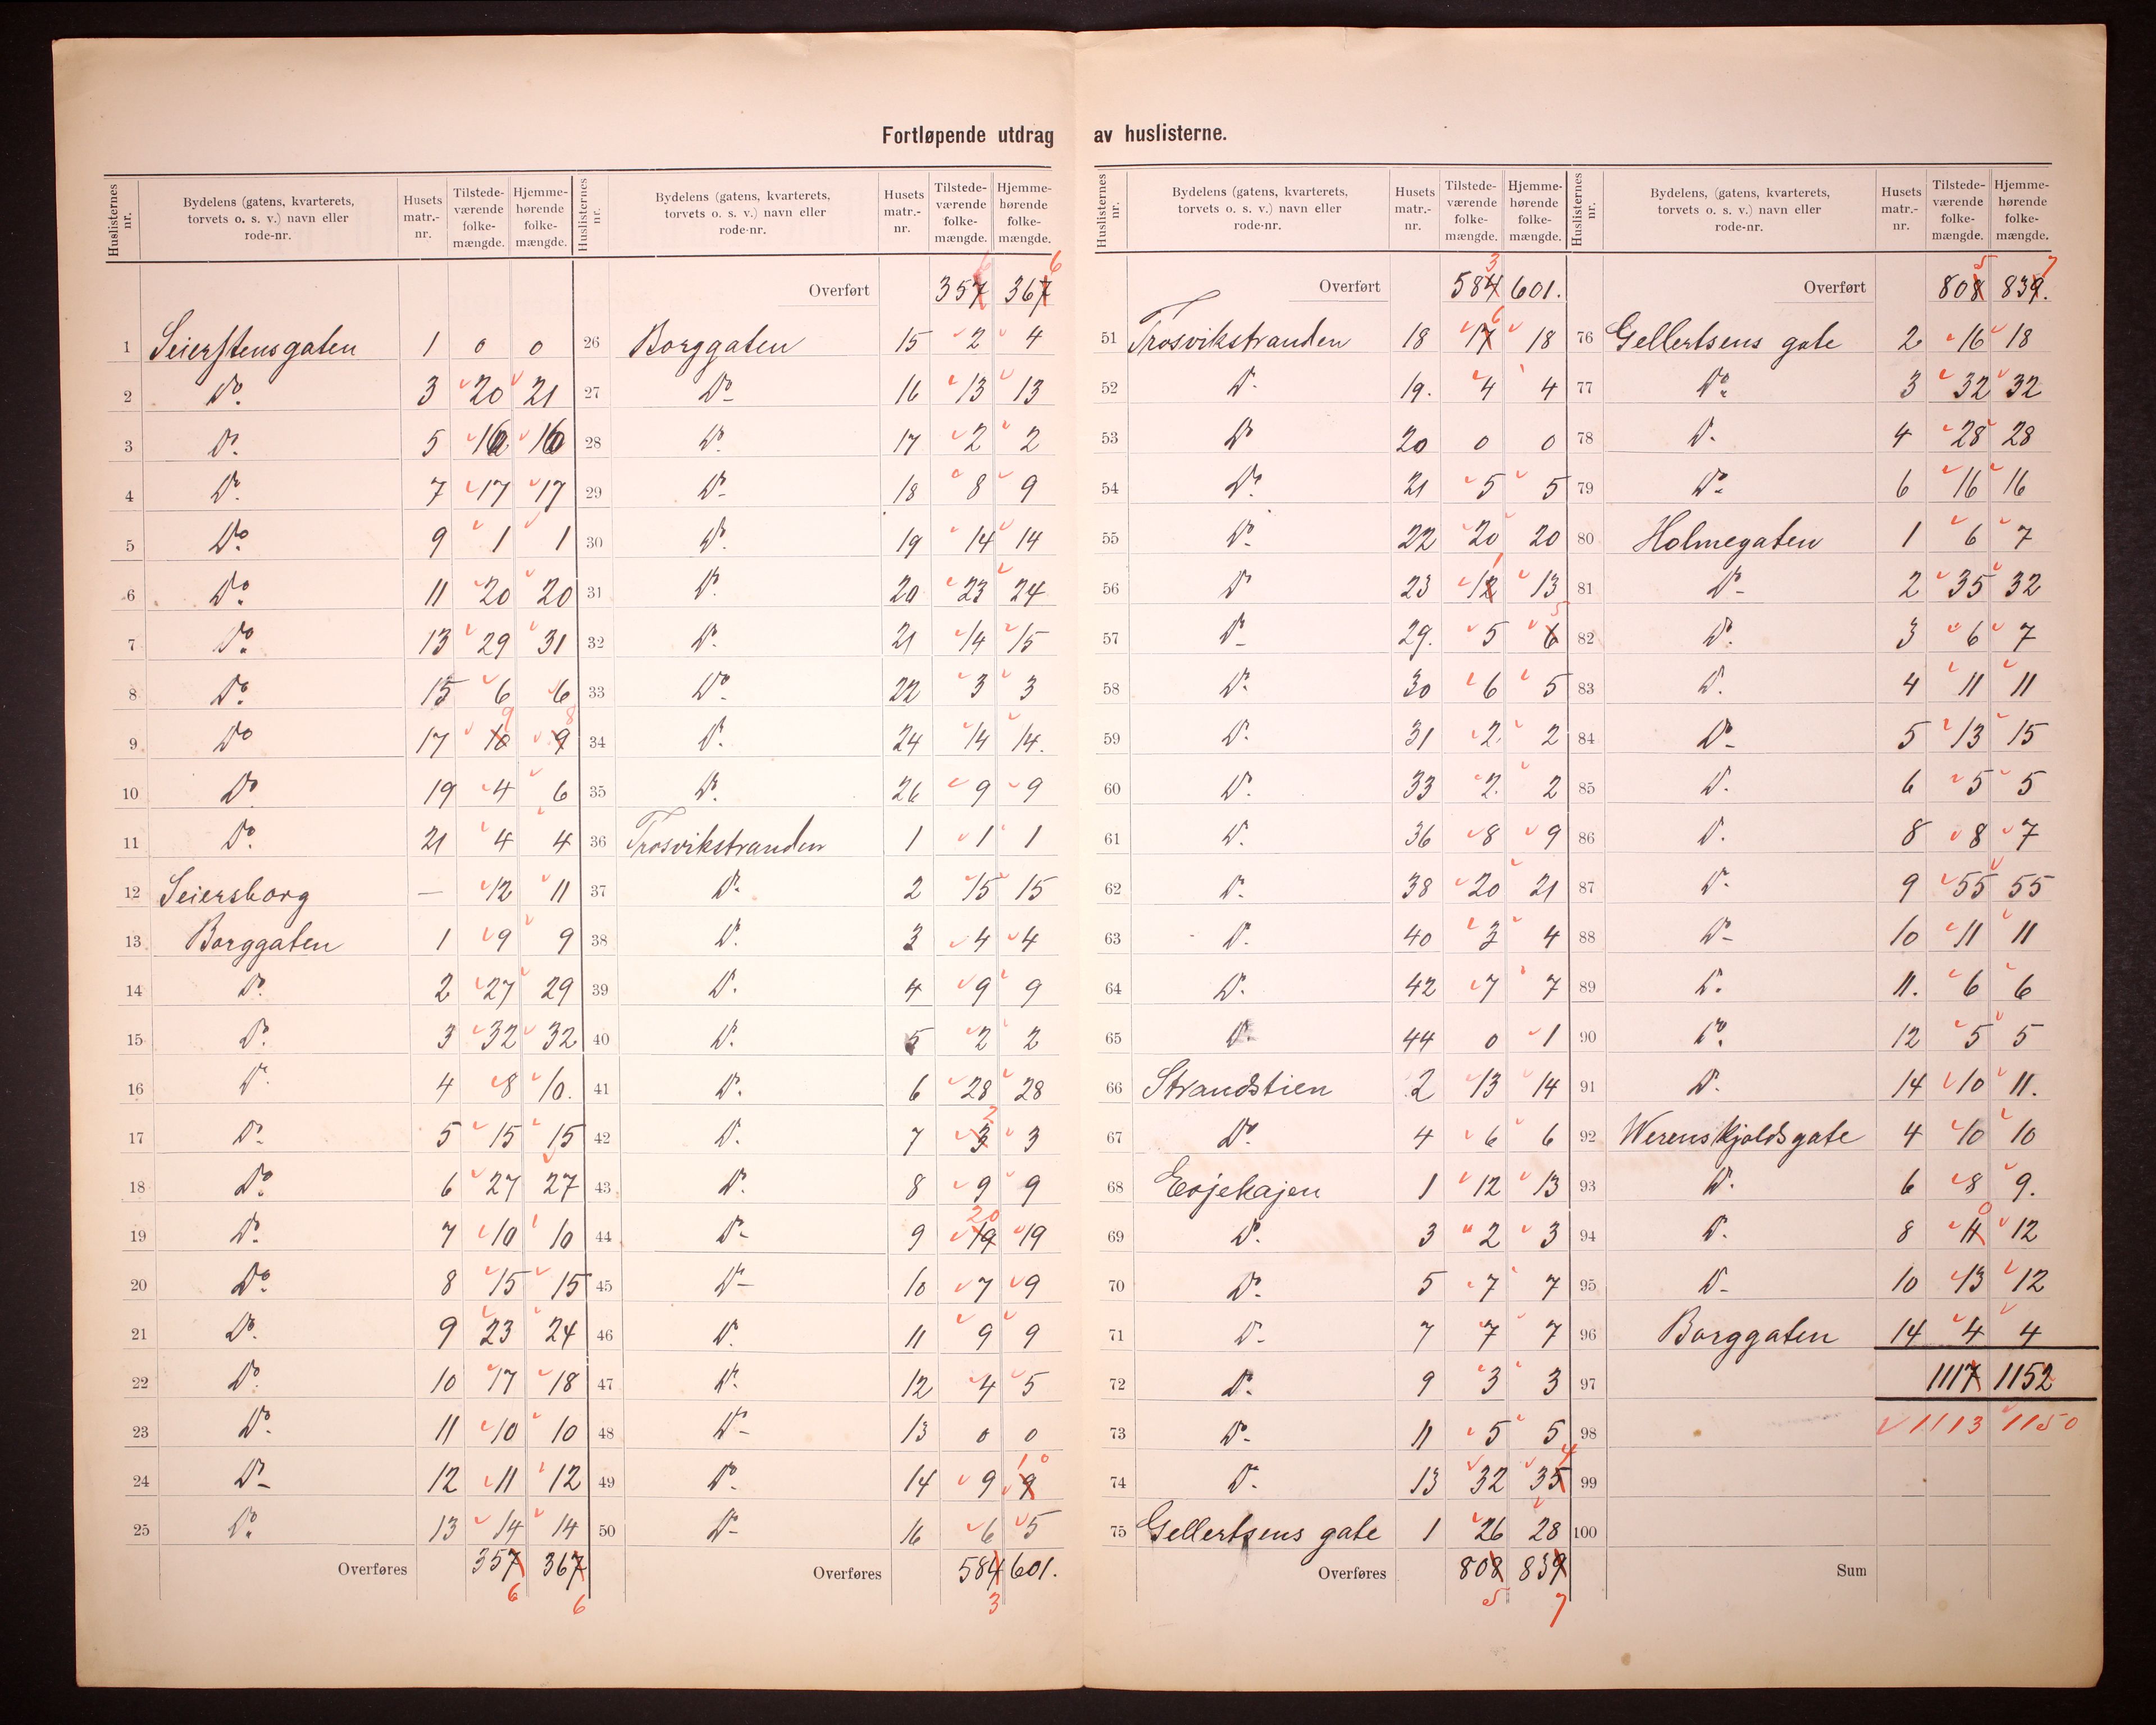 Fortløpende utdrag av huslisterne.
Huslisternes nr. | Bydelens (gatens, kvarterets, torvets o. s. v.) navn eller rode-nr. | Husets matr.-nr. | Tilstede-værende folke-mængde. | Hjemme-hørende folke-mængde.
1 Seierstensgaten 1 0 0
2 Do. 3 20 21
3 Do. 5 16 16
4 Do. 7 17 17
5 Do. 9 1 1
6 Do. 11 20 20
7 Do. 13 29 31
8 Do. 15 6 6
9 Do 17 10 9 9 8
10 Do 19 4 6
11 Do. 21 4 4
12 Seiersborg — 12 11
13 Borggaten 1 9 9
14 Do. 2 27 29
15 Do. 3 32 32
16 Do. 4 8 10.
17 Do. 5 15 15
18 Do. 6 27 27
19 Do. 7 10 10
20 Do. 8 15 15
21 Do. 9 23 24
22 Do. 10 17 18
23 Do. 11 10 10
24 Do. 12 11 12
25 Do. 13 14 14
Overføres 357 367
6 6
Huslisternes nr. | Bydelens (gatens, kvarterets, torvets o. s. v.) navn eller rode-nr. | Husets matr.-nr. | Tilstede-værende folke-mængde. | Hjemme-hørende folke-mængde.
6 6
Overført 357 367
26 Borggaten 15 2 4
27 Do 16 13 13
28 Do. 17 2 2
29 Do 18 8 9
30 Do. 19 14 14
31 Do. 20 23 24
32 Do. 21 14 15
33 Do. 22 3 3
34 Do. 24 14 14.
35 Do. 26 9 9
36 Trosvikstranden 1 1 1
37 Do. 2 15 15
38 Do. 3 4 4
39 Do. 4 9 9
40 Do. 5 2 2
41 Do. 6 28 28
42 Do. 7 3 2 3
43 Do. 8 9 9
44 Do 9 19 20 19
45 Do 10 7 9
46 Do. 11 9 9
47 Do. 12 4 5
48 Do 13 0 0
49 Do. 14 9 9 10
50 Do 16 6 5
Overføres 584 601.
3
Huslisternes nr. | Bydelens (gatens, kvarterets, torvets o. s. v.) navn eller rode-nr. | Husets matr.-nr. | Tilstede-værende folke-mængde. | Hjemme-hørende folke-mængde.
3
Overført 584 601.
51 Trosvikstranden 18 17 6 18
52 Do. 19. 4 4
53 Do 20 0 0
54 Do. 21 5 5
55 Do. 22 20 20
56 Do 23 12 1 13
57 Do 29. 5 6 5
58 Do. 30 6 5
59 Do. 31 2. 2
60 Do. 33 2. 2
61 Do. 36 8 9
62 Do. 38 20 21
63 Do. 40 3 4
64 Do. 42 7 7
65 Do. 44 0 1
66 Strandstien 2 13 14
67 Do. 4 6 6
68 Evjekajen 1 12 13
69 Do. 3 2 3
70 Do. 5 7 7
71 Do. 7 7 7
72 Do. 9 3 3
73 Do. 11 5 5
74 Do. 13 32 35 4
75 Gellertsens gate 1 26 28
Overføres 808 839
5 7
Huslisternes nr. | Bydelens, (gatens, kvarterets, torvets o. s. v.) navn eller rode-nr. | Husets matr.-nr. | Tilstede-værende folke-mængde. | Hjemme-hørende folke-mængde.
5 7
Overført 808 839.
76 Gellertsens gate 2 16 18
77 Do. 3 32 32
78 Do. 4 28 28
79 Do. 6 16 16
80 Holmegaten 1 6 7
81 Do 2 35 32
82 Do. 3 6 7
83 Do. 4 11 11
84 Do 5 13 15
85 Do. 6 5 5
86 Do. 8 8 7
87 Do. 9 55 55
88 Do 10 11 11
89 Do. 11. 6 6
90 Do. 12 5 5
91 Do. 14 10 11.
92 Werenskjoldsgate 4 10 10
93 Do. 6 8 9.
94 Do. 8 11 0 12
95 Do 10 13 12
96 Borggaten 14 4 4
97 1117 1152
98 1113 1150
99
100
Sum